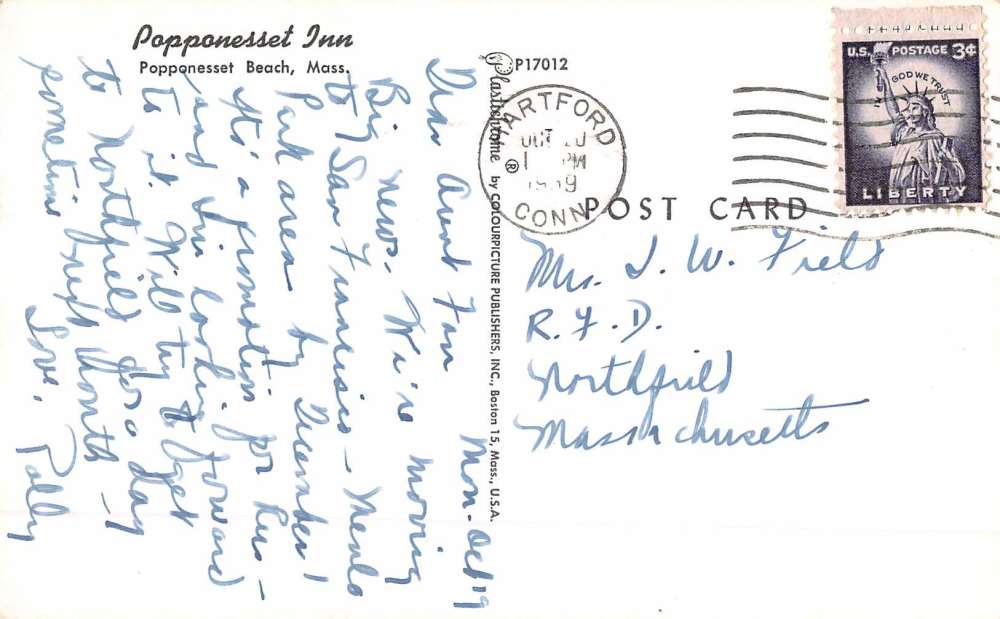 Popponesset Inn
Popponesset Beach, Mass.
Mon. Oct 19
Dear Aunt Fan
Big news. We're moving
to San Francisco – Menlo
Park area by December!
It's a promotion for Russ –
and I'm looking forward
to it. Will try to get
to Northfield for a day
sometime next month –
Love,
Polly
P17012
Plastichrome by COLOURPICTURE PUBLISHERS, INC., Boston 15, Mass., U.S.A.
®
HARTFORD
OCT 20
1 PM
1959
CONN
U.S. POSTAGE 3¢
IN GOD WE TRUST
LIBERTY
POST CARD
Mrs. J. W. Field
R. F. D.
Northfield
Massachusetts